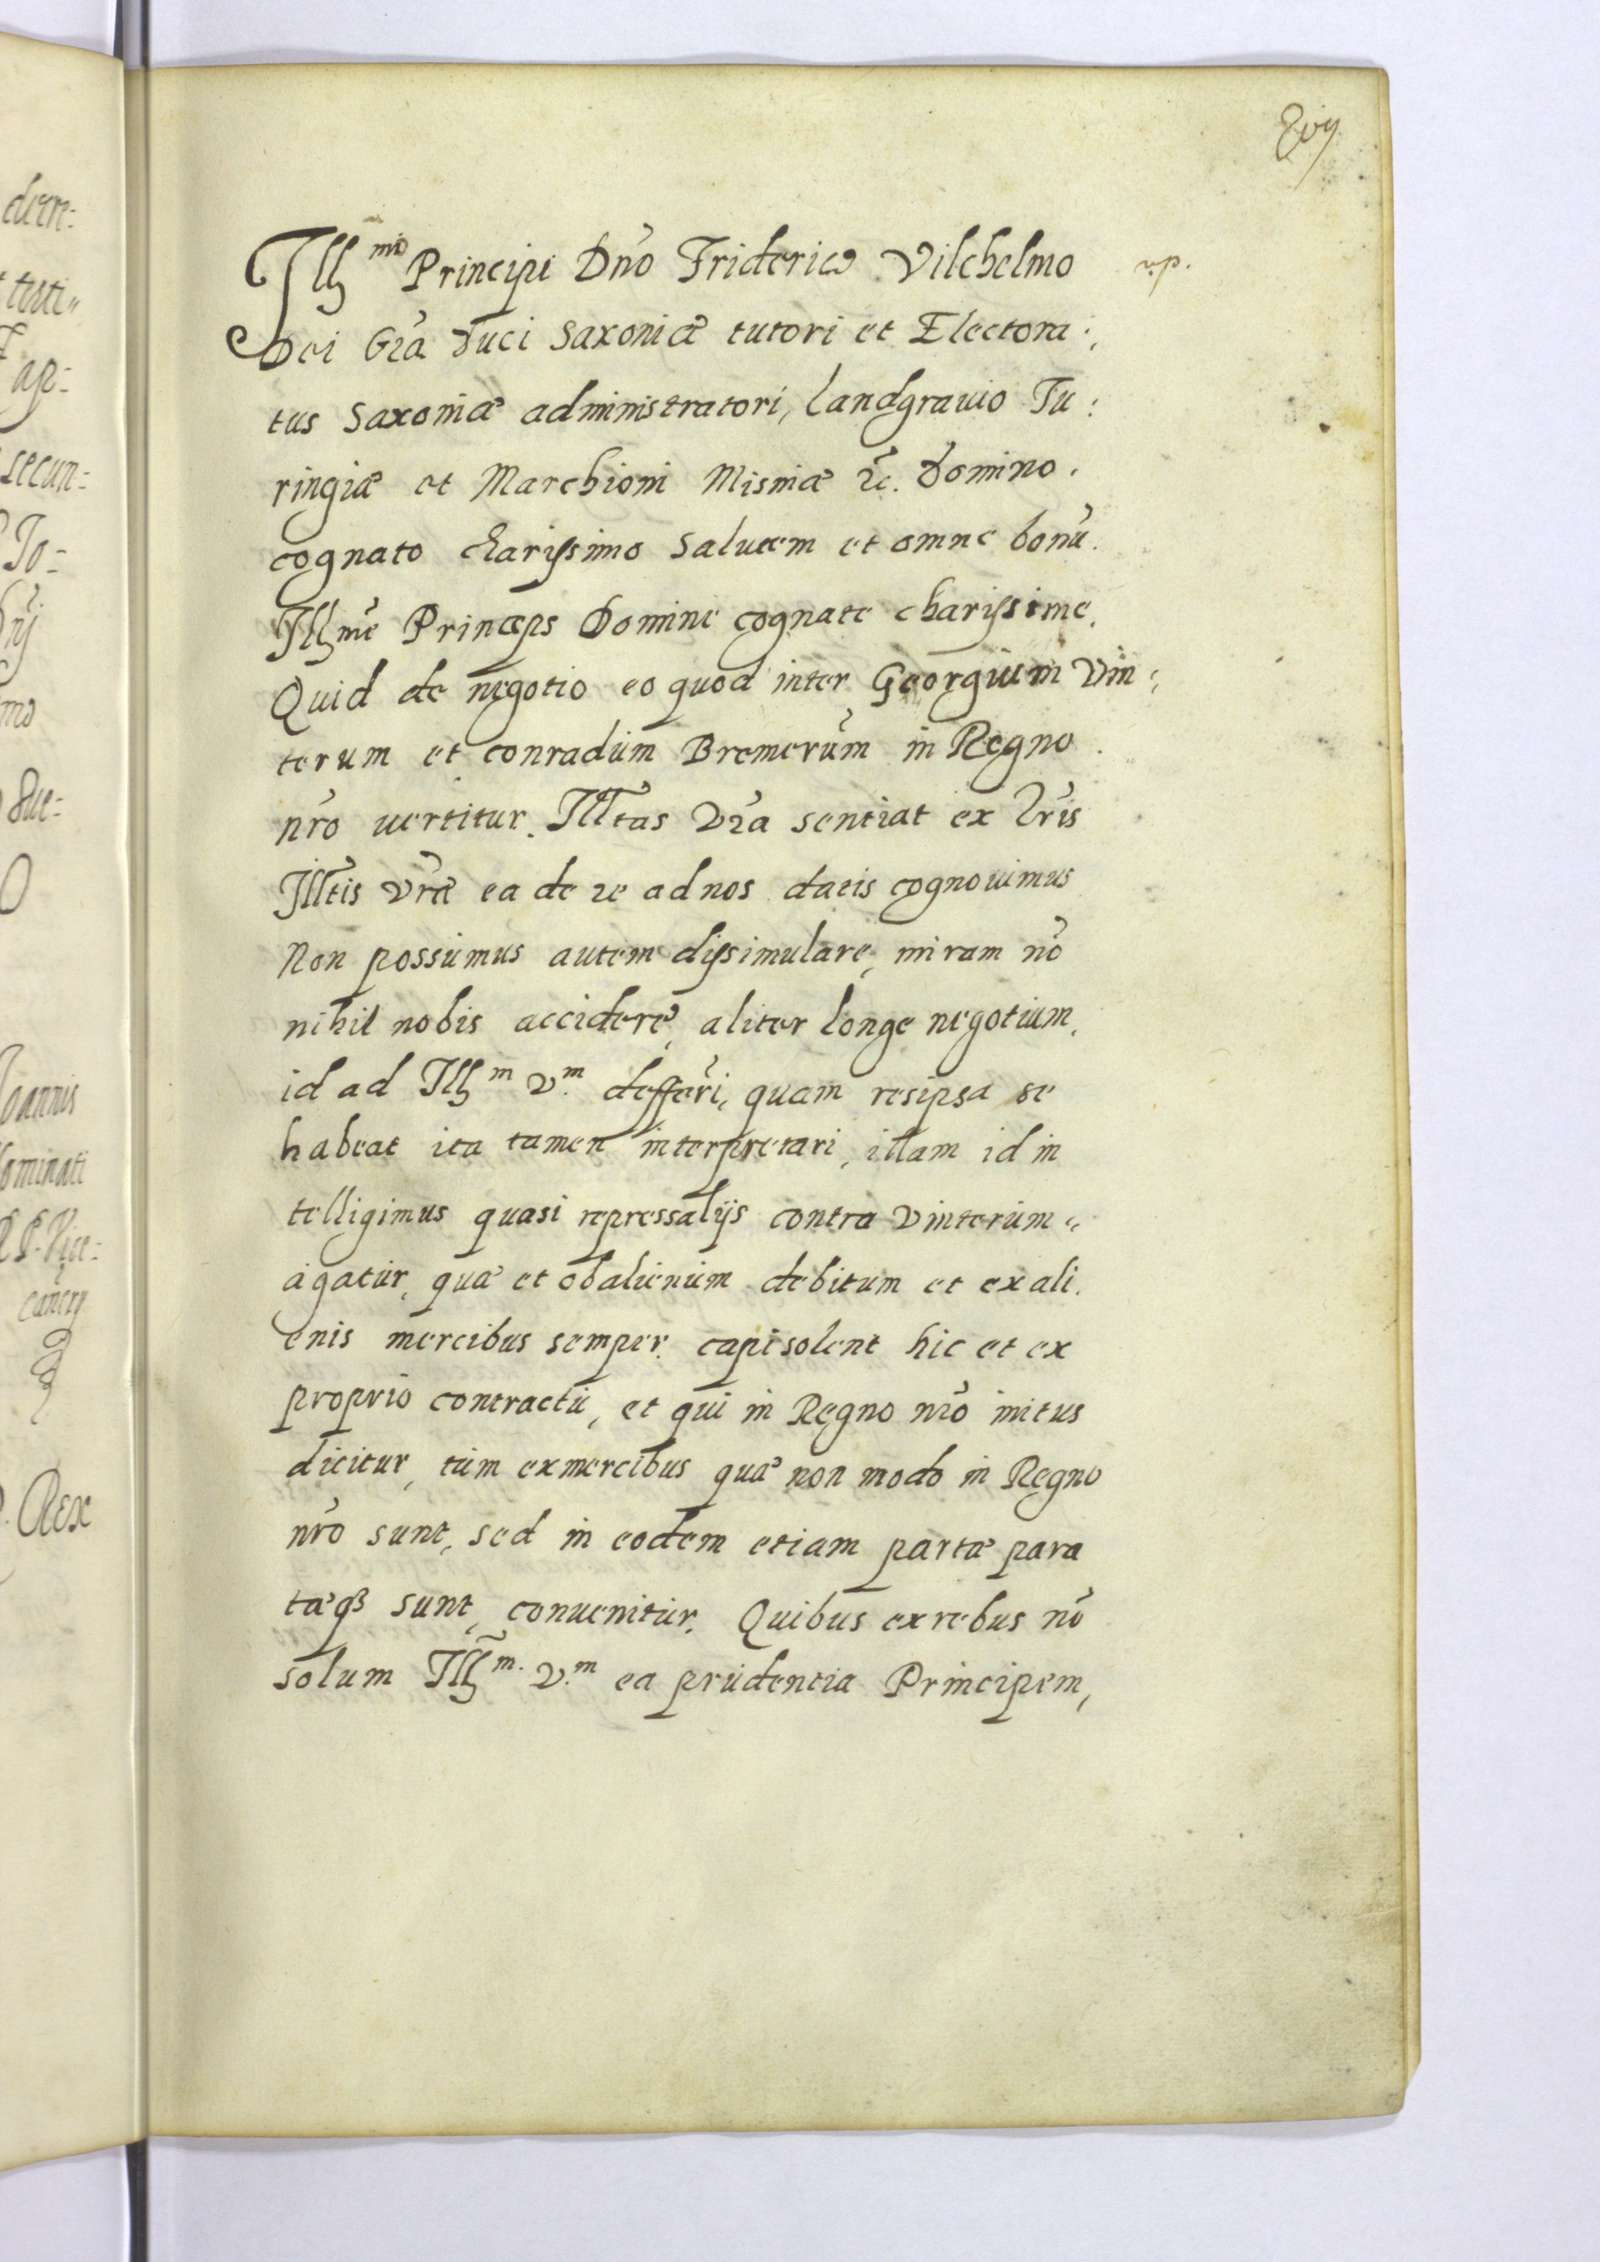 Illmo Principi Dno Friderico Vilchelmo
Dei Gra Duci Saxoniæ tutori et Electora:
tus Saxoniæ administratori, Landgrauio Tu:
ringiæ et Marchioni Misniæ &c. Domino.
cognato charissimo Salutem et omne bonū.
Illme Princeps Domine cognate charissime.
Quid de negotio eo quod inter Georgium Vin:
terum et conradum Bremerum in Regno
nro uertitur. Illtas Vra sentiat ex lris
Illtis Vræ ea de re ad nos datis cognouimus
Non possumus autem dissimulare, miram nō
nihil nobis accidere, aliter longe negotium,
id ad Illm V.m defferri, quam res ipsa se
habeat ita tamen interpretari, illam id in
telligimus quasi repressalijs contra Vinterum
agatur, quæ et ob alienum debitum et ex ali.
enis mercibus semper capi solent hic et ex
proprio contractu, et qui in Regno nro initus
dicitur, tum ex mercibus quæ non modo in Regno
nro sunt, sed in eodem etiam partæ para
tæq3 sunt, conuenitur. Quibus ex rebus nō
solum Illm. V.m ea prudentia Principem,
ducis
Jo-
mo
O
Joannis
Rex